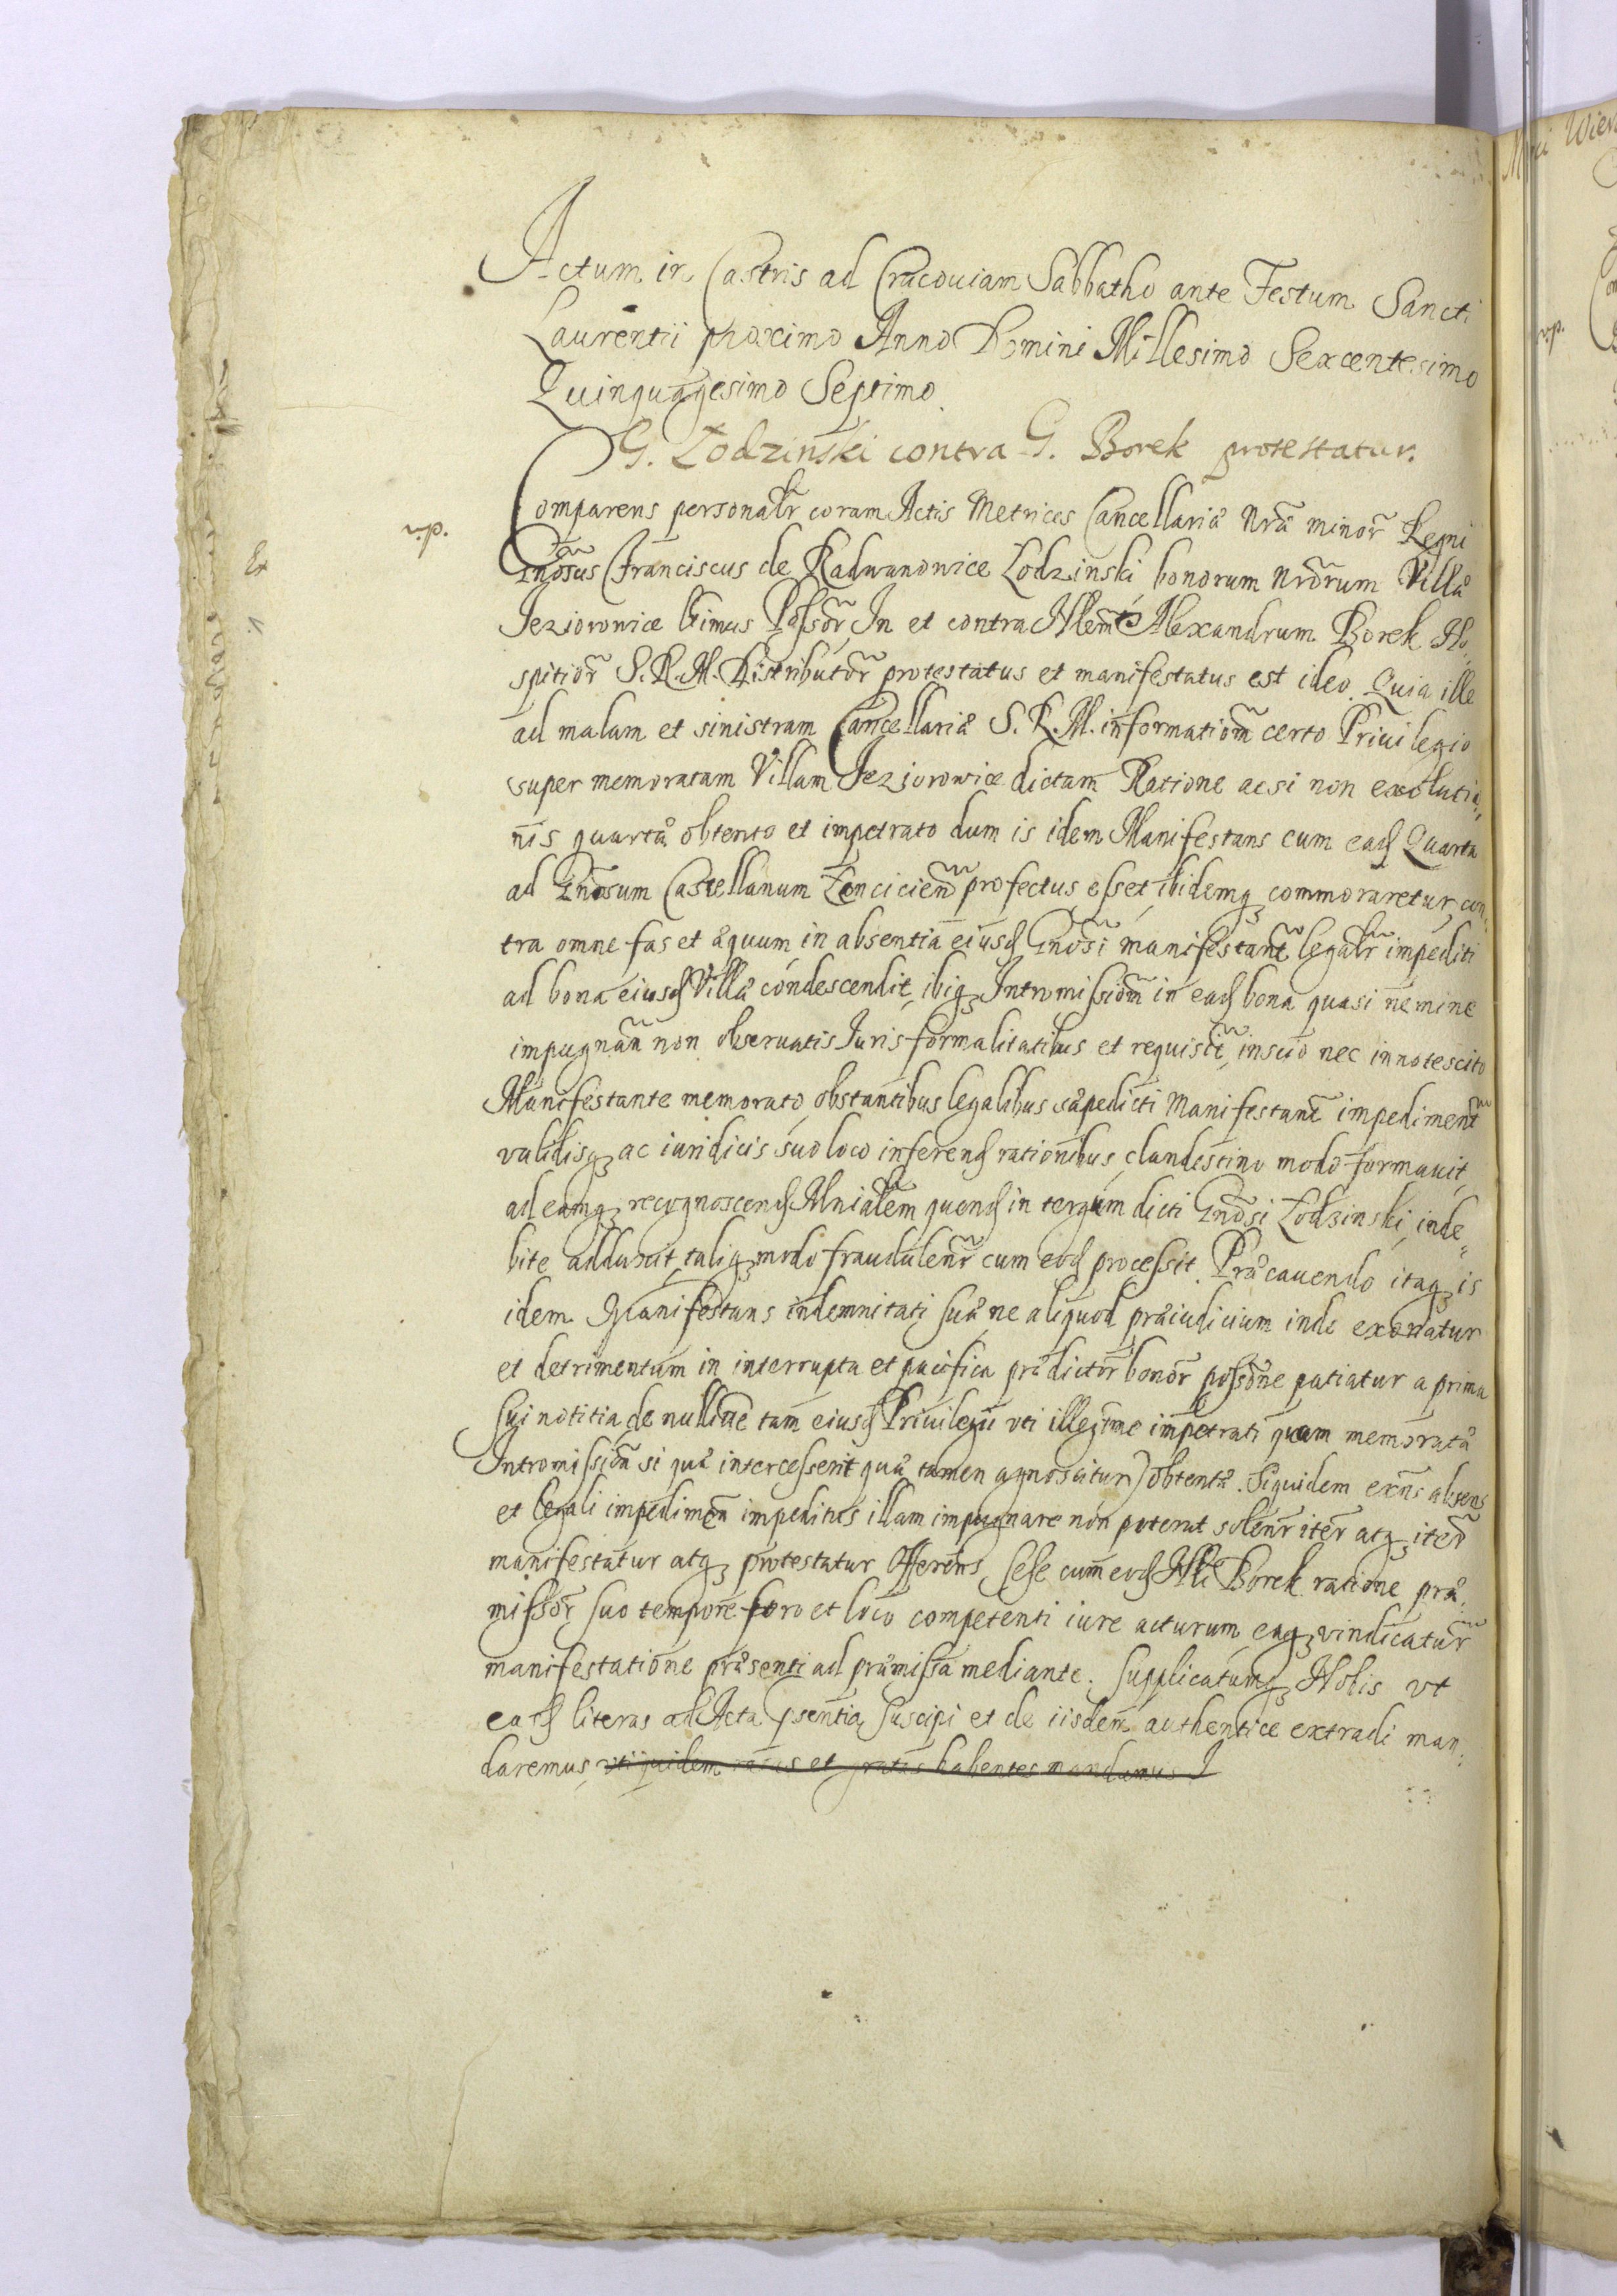 Actum in Castris ad Cracouiam Sabbatho ante Festum Sancti
Laurentii proximo Anno Domini Millesimo Sexcentesimo
Quinquagesimo Septimo
G. Łodzinski contra G. Borek protestatur.
v.p.
Comparens personalr̃ coram Actis Metrices Cancellariæ Nr̃æ minor̃ Regni
Gñosus Franciscus de Radwanowice Łodzinski bonorum nr̃orum Villæ
Jeziorowice Ltimus Possor̃ In et contra Nlem Alexandrum Borek Ho
spitior̃ S. R. M. Distributor̃ protestatus et manifestatus est ideo Quia ille
ad malam et sinistram Cancellariæ S. R. M. informationm̃ certo Priuilegio
super memoratam Villam Jeziorowice dictam Ratione acsi non exolutio,,
nis quartæ obtento et impetrato dum is idem Manifestans cum eadȝ Quarta
ad Gñosum Castellanum Lencicien̄ profectus esset ibidemqȝ commoraretur con,,
tra omne fas et æquum in absentia eiusdȝ Gnosi manifestant̃ legalr̃ impediti
ad bona eiusdȝ Villæ condescendit ibiqȝ Intromissionm̃ in eadȝ bona quasi nemine
impugnan̄ non obseruatis Iuris formalitatibus et requisit̃ inscio nec innotescito
Manifestante memorato obstantibus legalibus sæpedicti Manifestant̃ impediment̃
validisqȝ ac iuridicis suo loco inferendȝ rationibus clandestino modo formauit
ad eamqȝ recognoscendȝ Mnialem̃ quendȝ in tergum dicti Gñosi Łodzinski inde,,
bite adduxit taliqȝ modo fraudulenr̃ cum eodȝ processit. Præcauendo itaqȝ is
idem Manifestans indemnitati suæ ne aliquod præiudicium inde exoriatur
et detrimentum in interrupta et pacifica prædictor̃ bonor̃ possõne patiatur a prima
sui notitia de nullitae tam eiusdȝ Priuilegii vti illegitime impetrati quam memoratæ
Intromission̄ si quæ intercesserit quæ tamen agnoscitur) obtentæ. Siquidem exñs absens
et legali impedimen̄ impeditus illam impugnare non poterat solenr̃ iter̃ atqȝ iter̃
manifestatur atqȝ protestatur Offerens sese cum eodȝ Nli Borek ratione præ,,
missor̃ suo tempore foro et loco competenti iure acturum eaqȝ vindicatur̃
manifestatione præsenti ad præmissa mediante. Supplicatumqȝ Nobis vt
easdȝ literas ad Acta psentia suscipi et de iisdem authentice extradi man,,
daremus vti quidem ratas et gratas habentes mandamus